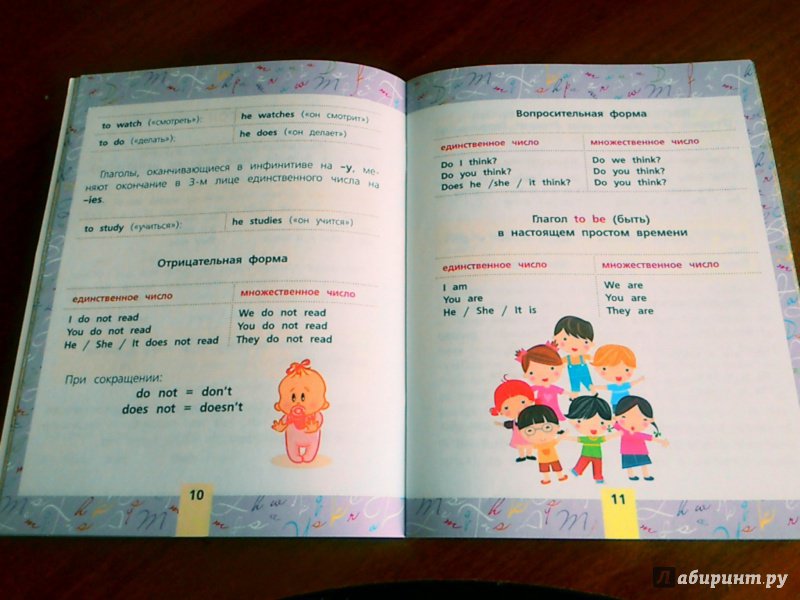 to watch («смотреть»): he watches («он смотрит»)
to do («делать»): he does («он делает»)
Глаголы, оканчивающиеся в инфинитиве на –y, ме-
няют окончание в 3-м лице единственного числа на
–ies.
to study («учиться»): he studies («он учится»)
Отрицательная форма
единственное число множественное число
I do not read We do not read
You do not read You do not read
He / She / It does not read They do not read
При сокращении:
do not = don't
does not = doesn't
10
Вопросительная форма
единственное число множественное число
Do I think? Do we think?
Do you think? Do you think?
Does he /she / it think? Do you think?
Глагол to be (быть)
в настоящем простом времени
единственное число множественное число
I am We are
You are You are
He / She / It is They are
11
Лабиринт.ру